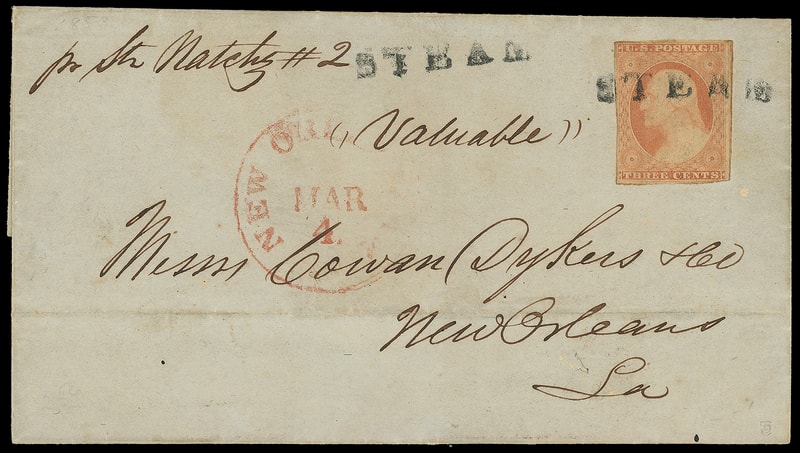 pr Str Natchz #2
STEAM
U.S. POSTAGE
STEAM
THREE CENTS
(( Valuable ))
NEW OR
MAR
4.
Messrs Cowan Dykers & Co
New Orleans
La